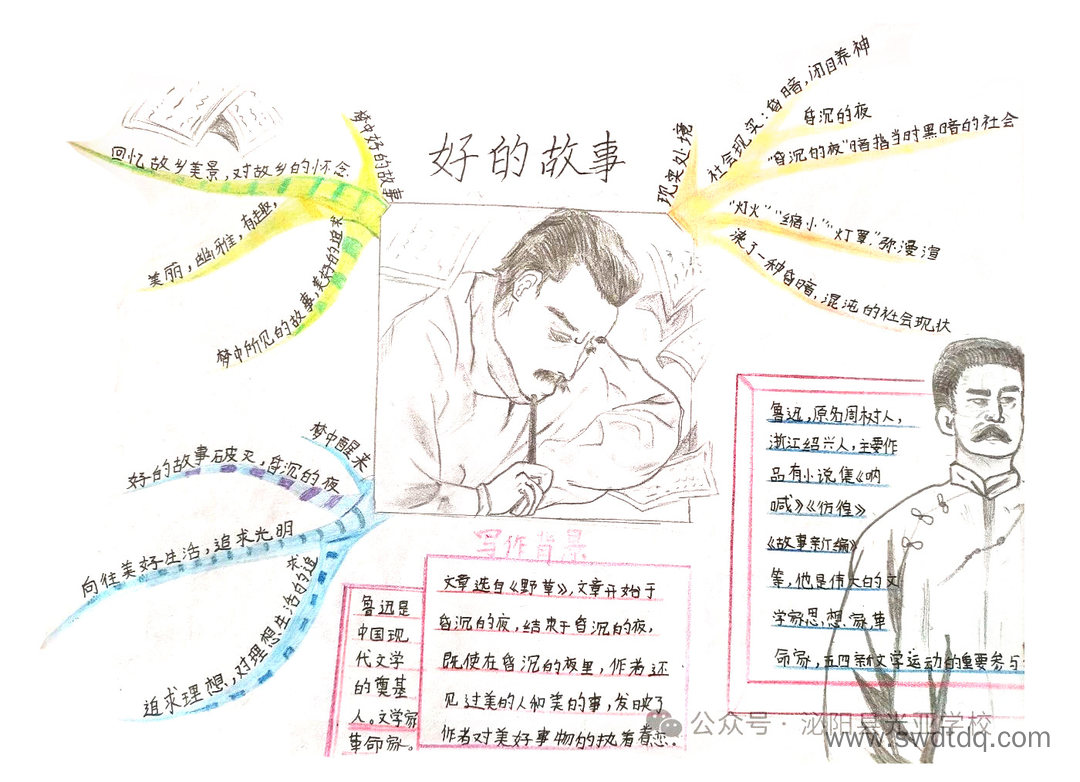 好的故事
梦中好的故事
回忆故乡美景，对故乡的怀念
美丽，幽雅，有趣，
梦中所见的故事，美好的追求
现实处境
社会现实：昏暗，闭目养神
昏沉的夜
“昏沉的夜”暗指当时黑暗的社会
“灯火”“缩小”“灯罩”弥漫渲
染了一种昏暗，混沌的社会现状
梦中醒来
好的故事破灭，昏沉的夜
向往美好生活，追求光明
追求理想，对理想生活的追求
写作背景
鲁迅是
中国现
代文学
的奠基
人。文学家
革命家。
文章选自《野草》，文章开始于
昏沉的夜，结束于昏沉的夜，
既使在昏沉的夜里，作者还
见过美的人和美的事，发映了
作者对美好事物的执着眷恋.
鲁迅，原名周树人，
浙江绍兴人，主要作
品有小说集《呐
喊》《彷徨》
《故事新编》
等，他是伟大的文
学家，思想家，革
命家，五四新文学运动的重要参与
公众号 · 泌阳县光亚学校
www.swdtdq.com